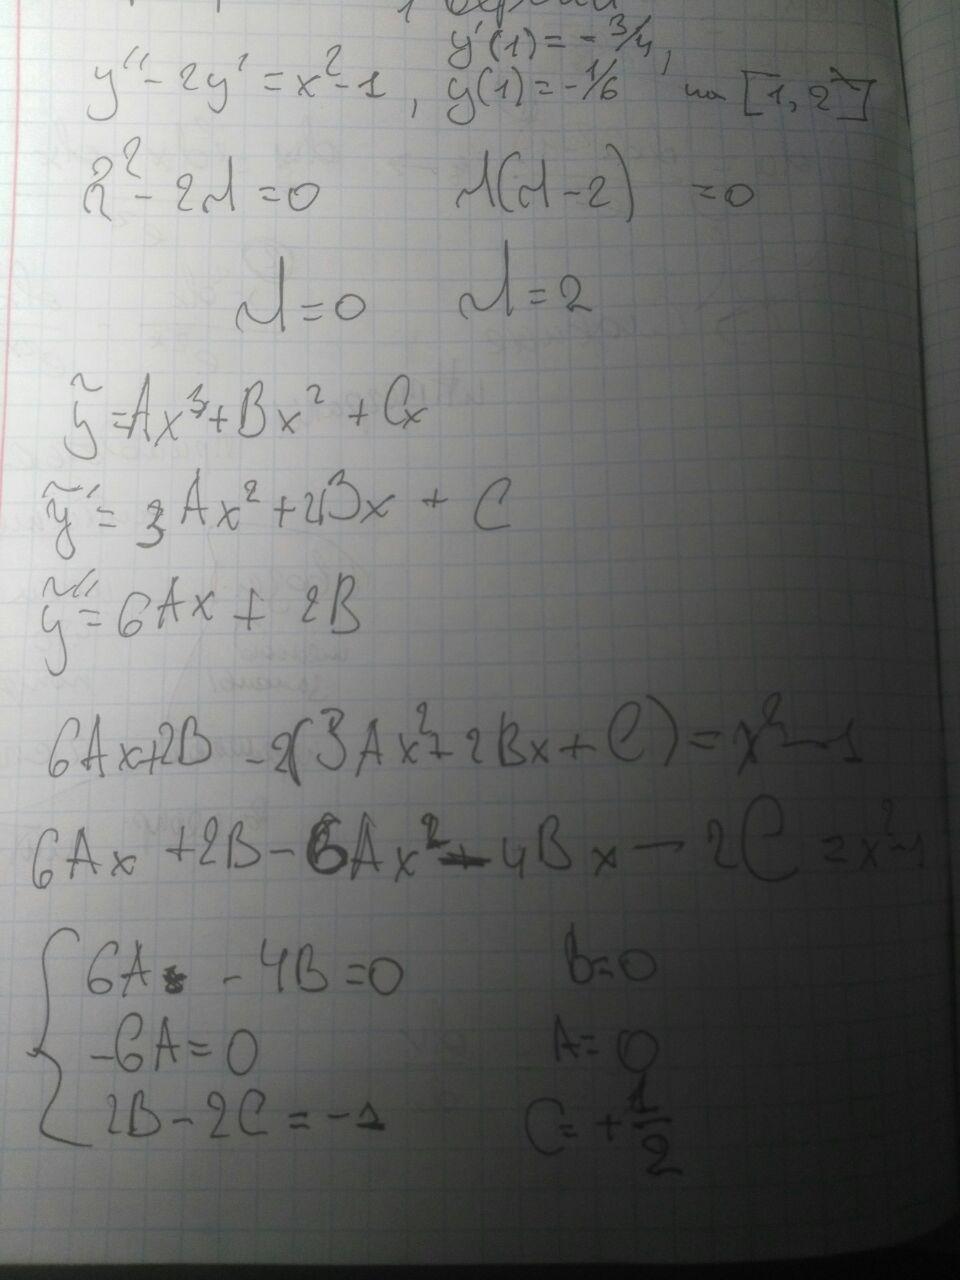 y'(1) = - 3/4,
y'' - 2y' = x² - 1 , y(1) = - 1/6 на [1, 2]
λ² - 2λ = 0 λ(λ - 2) = 0
λ = 0 λ = 2
ỹ = Ax³ + Bx² + Cx
ỹ' = 3Ax² + 2Bx + C
ỹ'' = 6Ax + 2B
6Ax + 2B - 2(3Ax² + 2Bx + C) = x² - 1
6Ax + 2B - 6Ax² - 4Bx - 2C = x² - 1
6A - 4B = 0 B = 0
-6A = 0 A = 0
2B - 2C = -1 C = + 1/2